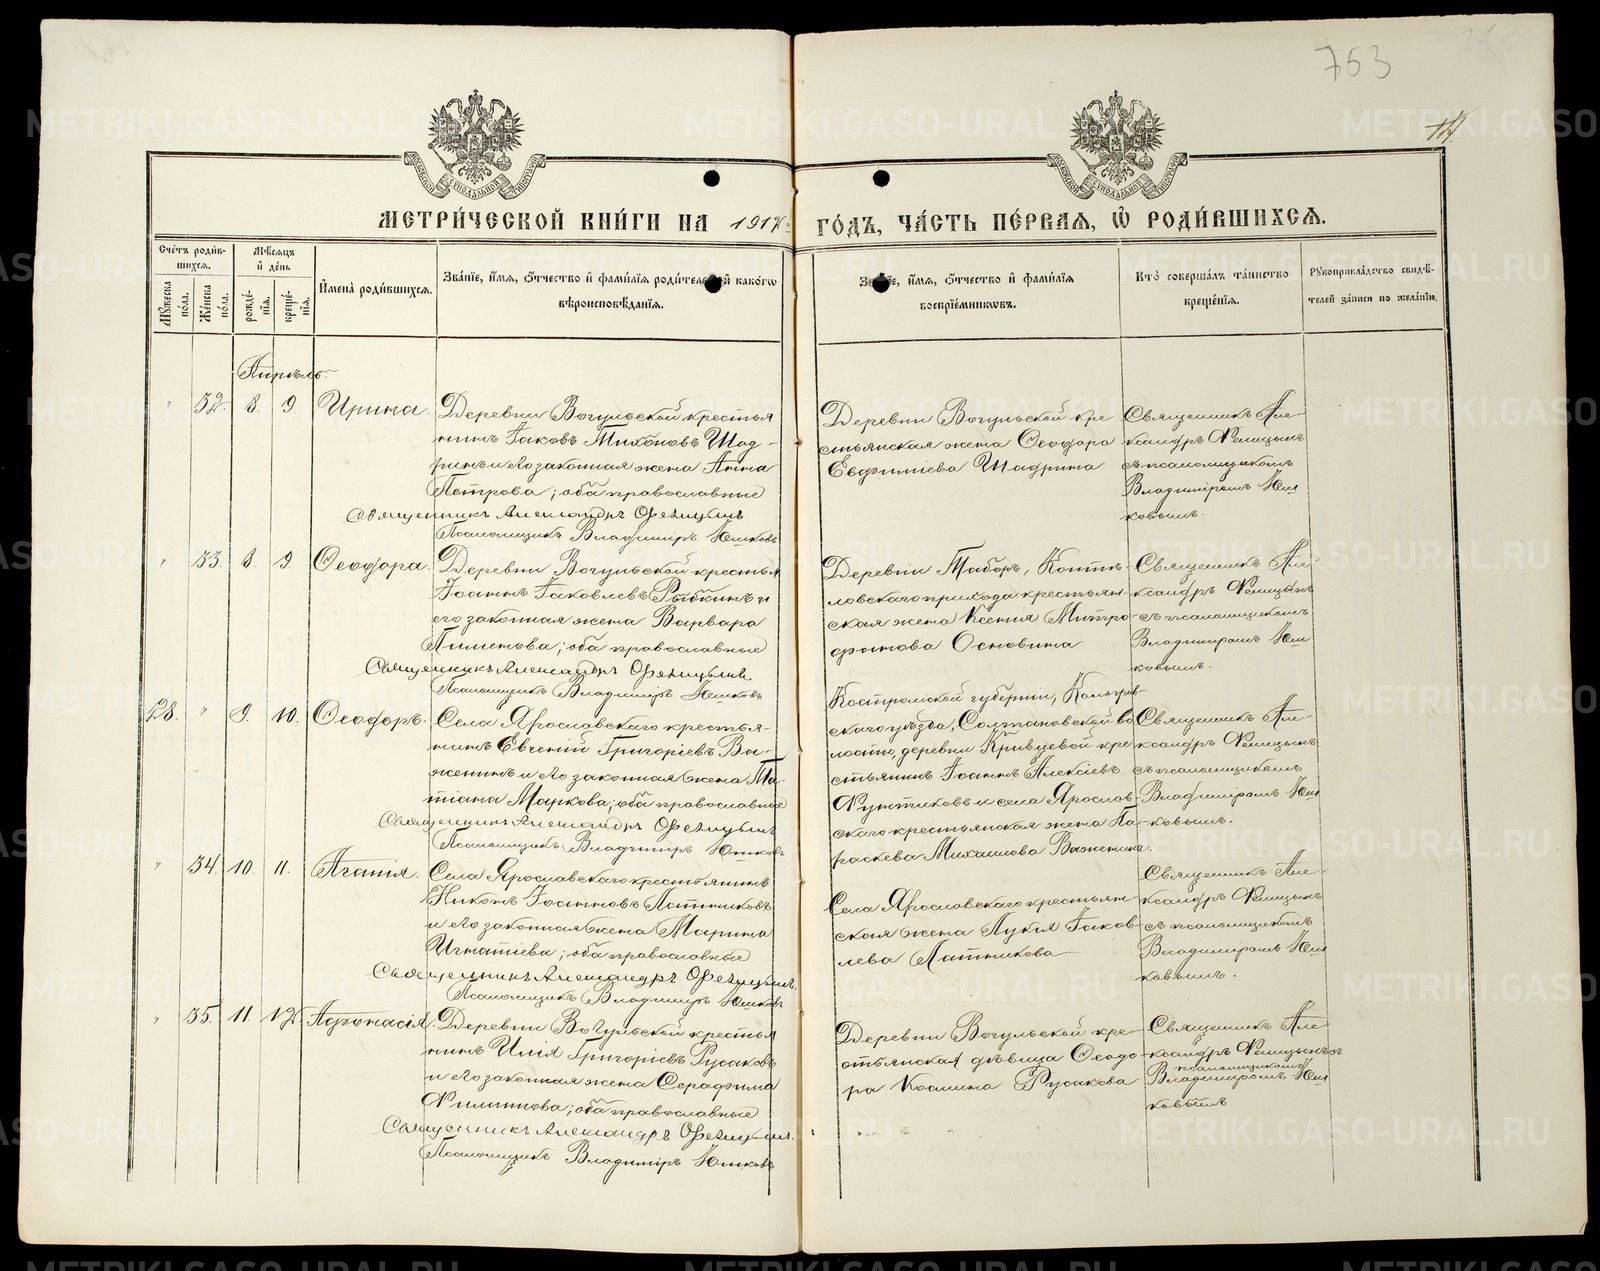 753
14
МЕТРИ́ЧЕСКОЙ КНИ́ГИ НА 1917й
ГО́ДЪ, ЧА́СТЬ ПЕ́РВАѦ, Ѡ҆ РОДИ́ВШИХСѦ.
Сче́тъ роди́в-
шихсѧ.
Мѣ́сѧцъ
и҆ де́нь
Мꙋ́жеска по́ла.
Же́нска по́ла.
рожде́-
нїѧ.
креще́-
нїѧ.
И҆мена̀ роди́вшихсѧ.
Зва́нїе, и҆́мѧ, ѻ҆́тчество и҆ фами́лїѧ роди́телей и҆ како́гѡ
вѣроисповѣ́данїѧ.
Зва́нїе, и҆́мѧ, ѻ҆́тчество и҆ фами́лїѧ
воспрїе́мникѡвъ.
Кто̀ соверша́лъ та́инство
креще́нїѧ.
Рꙋкоприкла́дство свидѣ́-
телей за́писи по жела́нїю.
Апрѣль.
" 32. 8. 9 Ирина.
Деревни Вогульской крестья
нинъ Іаковъ Тихоновъ Шад-
ринъ и его законная жена Анна
Петрова; оба православные
Священникъ Александръ
Псаломщикъ Владиміръ Юшковъ
Деревни Вогульской кре
стьянская жена Ѳеодора
Евфиміева Шадрина
Священникъ Але-
ксандръ
съ псаломщикомъ
Владиміромъ Юш
ковымъ.
" 33. 8. 9. Ѳеодора.
Деревни Вогульской крестья
Іоаннъ Іаковлевъ Рыбкинъ и
его законная жена Варвара
Пименова; оба православные
Священникъ Александръ
Псаломщикъ Владиміръ Юшковъ
Деревни Таборъ,
ловскаго прихода крестьян-
ская жена Ксенія Митро
фанова Основина
Священникъ Але-
ксандръ
съ псаломщикомъ
Владиміромъ Юш
ковымъ.
28. " 9. 10. Ѳеодоръ.
Села Ярославскаго крестья-
нинъ Евгеній Григоріевъ Ва-
женинъ и его законная жена Та-
тіана Маркова; оба православные
Священникъ Александръ
Псаломщикъ Владиміръ Юшковъ
Костромской губерніи, Кологрив-
скаго уѣзда, Солтановской во
лости, деревни Кривцевой кре
стьянинъ Іоаннъ Алексіевъ
и села Ярослав-
скаго крестьянская жена Па-
раскева Михаилова Важенина.
Священникъ Але-
ксандръ
съ псаломщикомъ
Владиміромъ Юш
ковымъ.
" 34 10. 11. Агапія.
Села Ярославскаго крестьянинъ
Никонъ Іоанновъ Латниковъ
и его законная жена Марина
Игнатіева; оба православные
Священникъ Александръ
Псаломщикъ Владиміръ Юшковъ
Села Ярославскаго крестьян
ская жена Лукія Іаков-
лева Латникова
Священникъ Але-
ксандръ
съ псаломщикомъ
Владиміромъ Юш
ковымъ.
" 35. 11. 12. Афонасія.
Деревни Вогульской крестья
нинъ Илія Григоріевъ Русаковъ
и его законная жена Серафима
Филиппова; оба православные
Священникъ Александръ
Псаломщикъ Владиміръ Юшковъ
Деревни Вогульской кре-
стьянская дѣвица Ѳеодо
ра Космина Русакова
Священникъ Але
ксандръ съ
псаломщикомъ
Владиміромъ Юш
ковымъ
METRIKI.GASO-URAL.RU